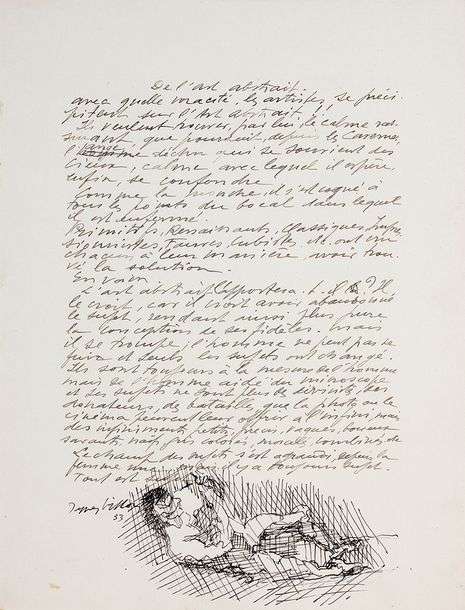 De l'Art abstrait.
avec quelle voracité, les artistes, se préci-
pitent sur l'Art Abstrait.
Ils veulent trouver, par lui, le calme ras-
surant, que poursuit, depuis les Cavernes,
l'ange déchu qui se souvient des
Cieux, calme, avec lequel il espère,
enfin, se confondre
Comme la mouche, il s'est cogné à
tous les points du bocal dans lequel
il est enfermé.
Primitifs, Renaissants, Classiques, Impres
sionnistes, Fauves, Cubistes etc. ont cru
chacun à leur manière, avoir trou-
vé la solution.
En vain
L'art abstrait l'apportera-t-il ? Il
le croit, car il croit avoir abandonné
le sujet, rendant ainsi plus pure
la conception de ses fidèles. Mais
il se trompe, l'homme ne peut pas se
fuir et seuls les sujets ont changé.
Ils sont toujours à la mesure de l'homme
mais de l'homme aidé du microscope
et ses sujets ne sont plus de divinités, des
donateurs, de batailles que la photo ou le
cinéma peuvent leur offrir à l'infini, mais
des infiniments petits, précis, vagues,
savants, naïfs,
Le champ des sujets s'est agrandi, depuis la
femme nue, mais il y a toujours sujet.
Tout est
Jacques Villon
53